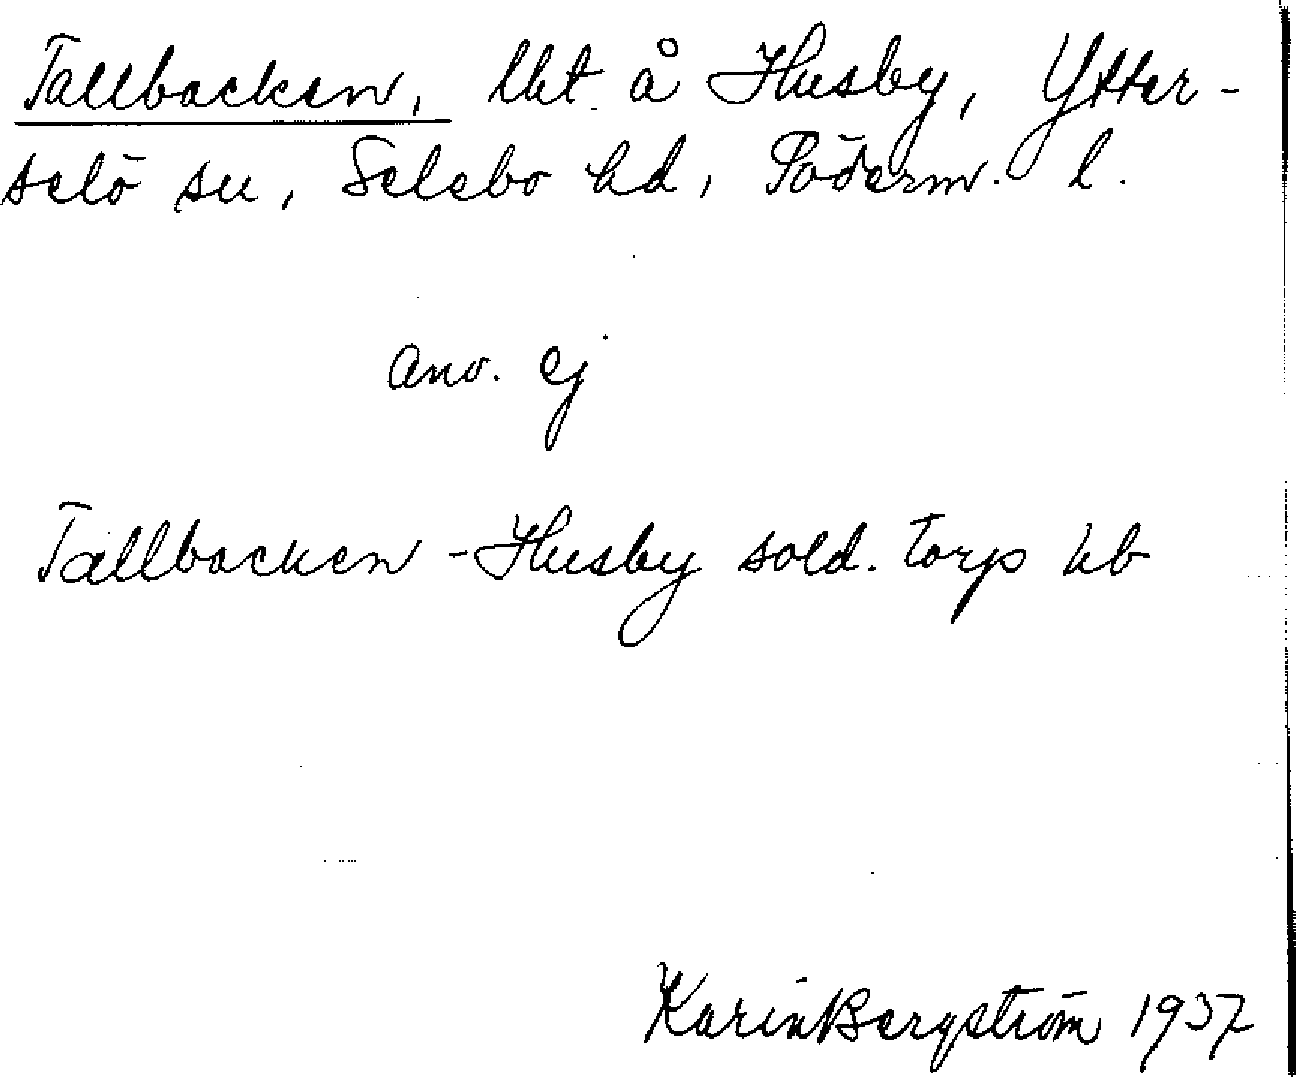 Tallbacken, lht å Husby, Ytter-
selö sn, Selebo hd, Söderm. l.
Anv. ej
Tallbacken - Husby sold. torp hb
Karin Bergström 1937